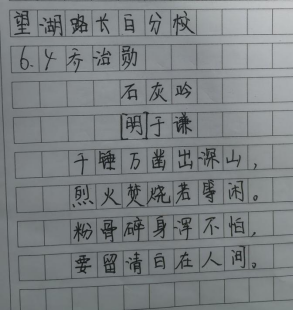 望湖路长百分校
6.4乔治勋
石灰吟
[明]于谦
千锤万凿出深山，
烈火焚烧若等闲。
粉骨碎身浑不怕，
要留清白在人间。